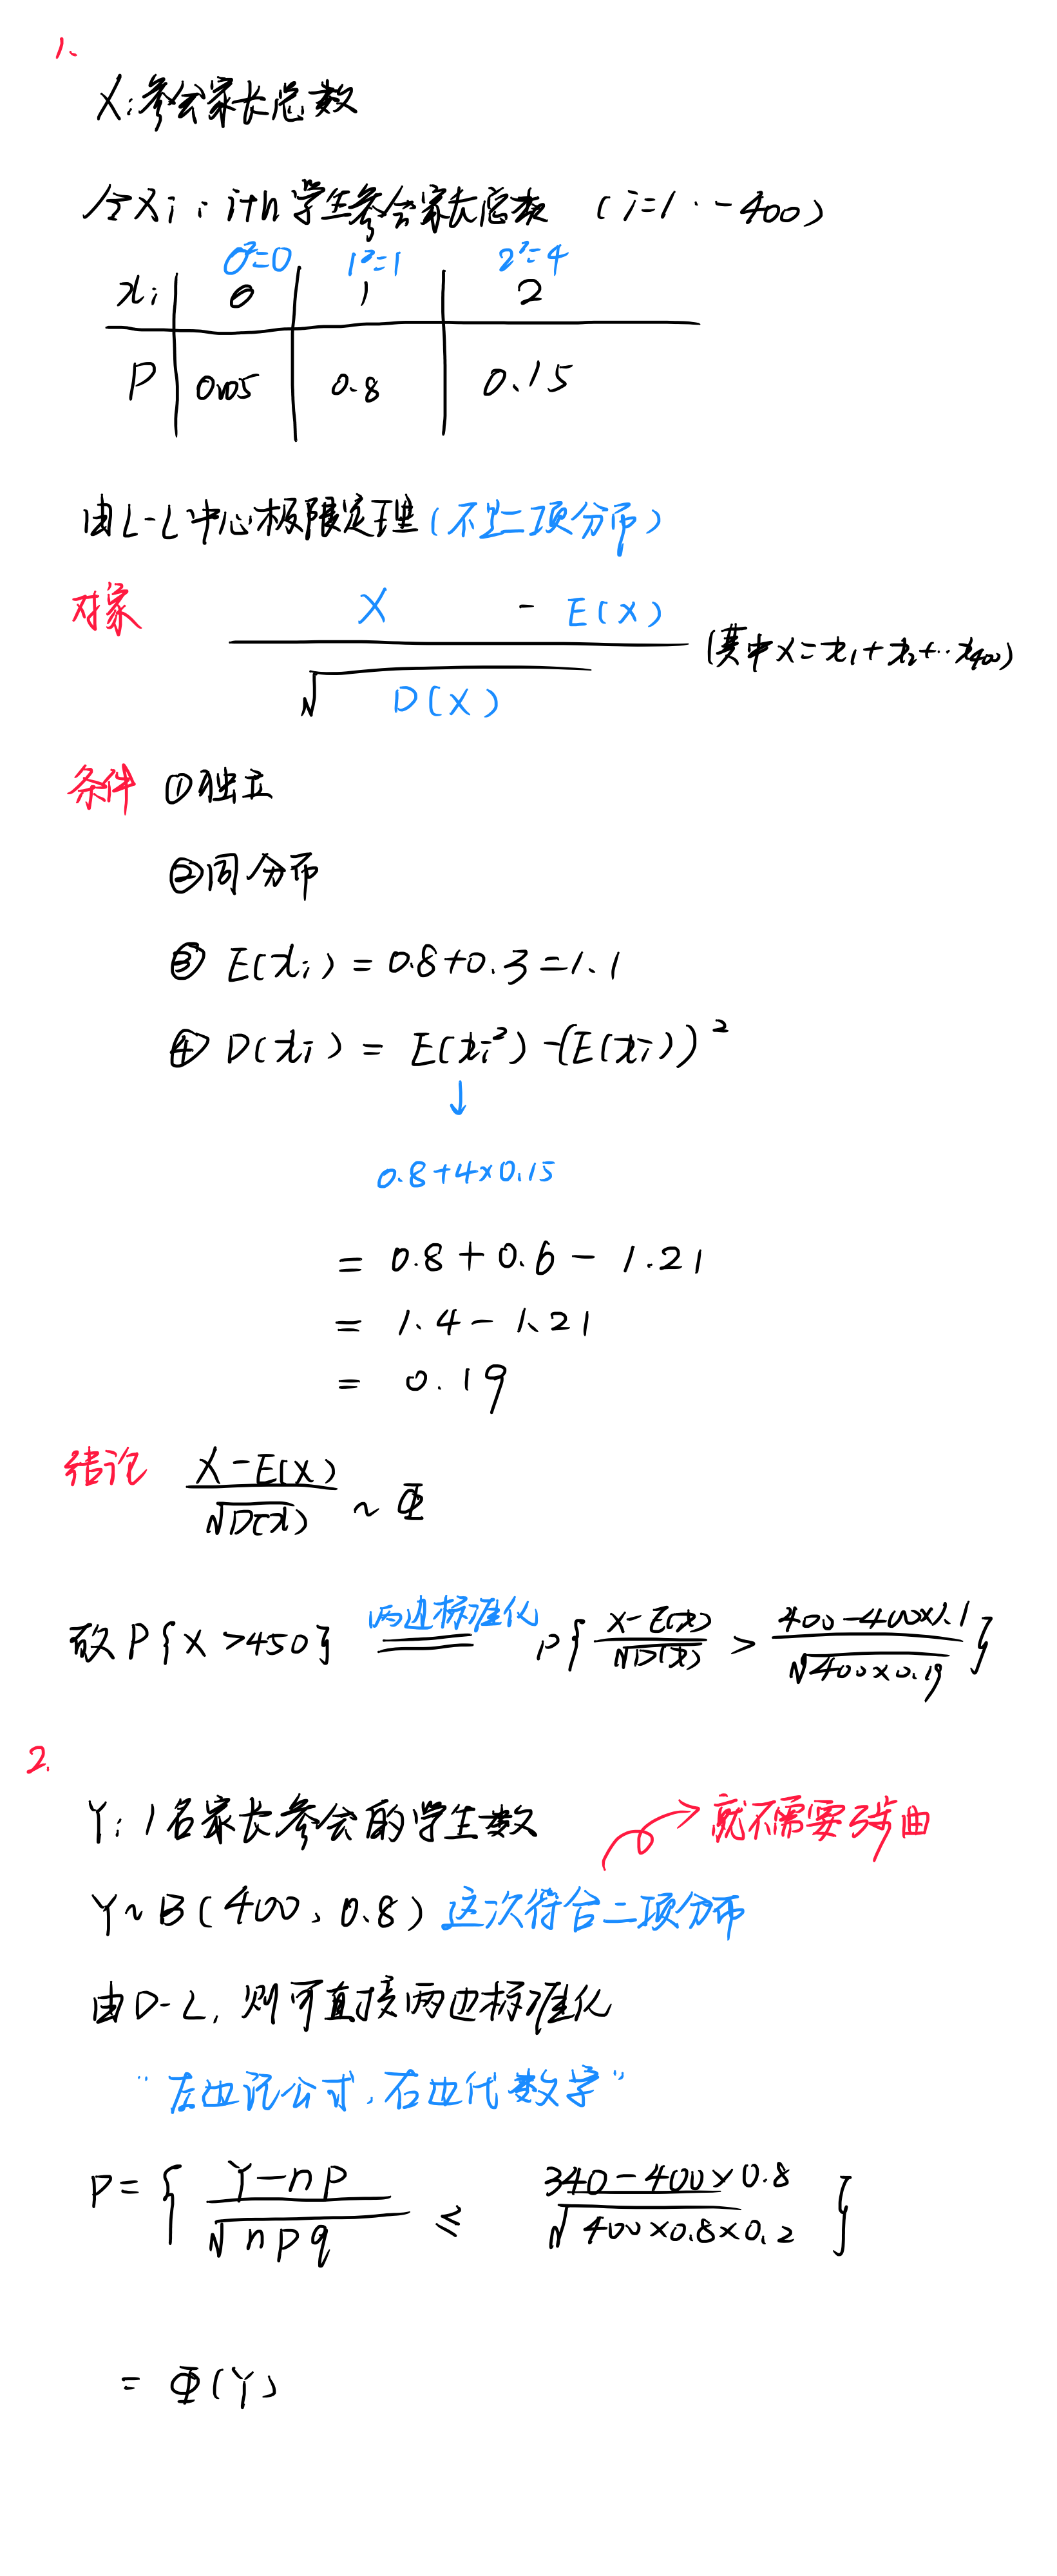 1、
X:参会家长总数
令Xi:ith学生参会家长总数 (i=1··-400)
0²=0 1²=1 2²=4
xi 0 1 2
P 0.05 0.8 0.15
由L-L中心极限定理(不是二项分布)
对象 X - E(X)
√D(X) (其中X=x₁+x₂+··x₄₀₀)
条件 ①独立
②同分布
③ E(xi)=0.8+0.3=1.1
④ D(xi) = E(xi²)-(E(xi))²
↓
0.8+4×0.15
= 0.8+0.6-1.21
= 1.4-1.21
= 0.19
结论 X-E(X) / √D(x) ~ Φ
故P{X>450} 两边标准化 P{ X-E(x) / √D(x) > 400-400×1.1 / √400×0.19 }
2.
Y:1名家长参会的学生数
→就不需要
Y~B(400、0.8) 这次符合二项分布
由D-L,则可直接两边标准化
"左边记公式,右边代数字"
P={ Y-np / √npq ≤ 340-400×0.8 / √400×0.8×0.2 }
= Φ(Y)